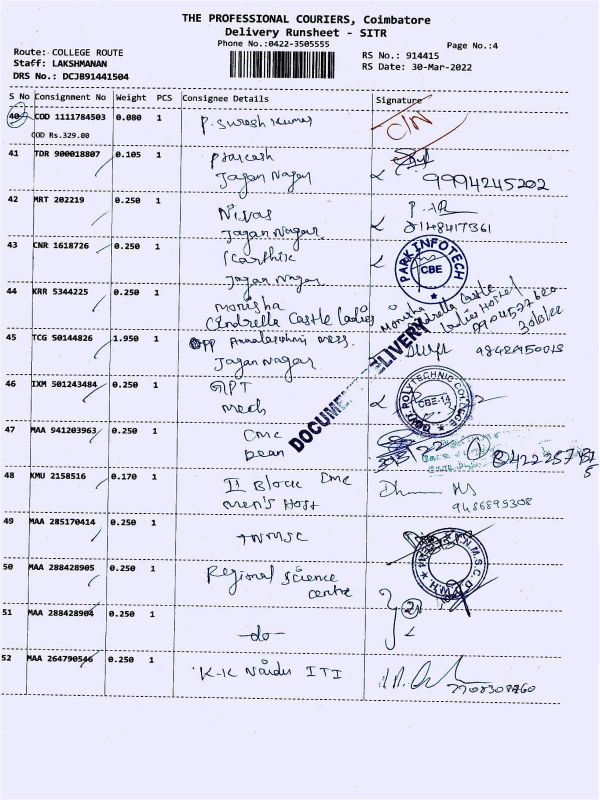 THE PROFESSIONAL COURIERS, Coimbatore
Delivery Runsheet - SITR
Phone No.:0422-3505555
Page No.:4
Route: COLLEGE ROUTE
Staff: LAKSHMANAN
DRS No.: DCJB91441504
RS No.: 914415
RS Date: 30-Mar-2022
S No Consignment No Weight PCS Consignee Details Signature
40 COD 1111784503 0.080 1 P. Suresh Kumar C/N
COD Rs.329.00
41 TDR 900018807 0.105 1
Jagan Nagar 9994245202
42 MRT 202219 0.250 1 Nivas
Jagan Nagar 8148417361
43 CNR 1618726 0.250 1 Karthik
Jagan Nagar
PARK INFOTECH
CBE
44 KRR 5344225 0.250 1 Monisha
Cindrella Castle Ladies
Monisha
Cindrella Castle
Ladies Hostel
30/3/22
45 TCG 50144826 1.950 1 Opp
Jagan Nagar
DOCUMENT DELIVERY
46 IXM 501243484 0.250 1 GPT
Mech
GOVT. POLYTECHNIC COLLEGE
CBE-14
47 MAA 941203963 0.250 1 CMC
Dean
48 KMU 2158516 0.170 1 II Block CMC
Men's Host
9486895308
49 MAA 285170414 0.250 1 TNMSC
50 MAA 288428905 0.250 1 Regional Science
Centre
2
51 MAA 288428904 0.250 1 -do-
52 MAA 264790546 0.250 1 K-K Naidu ITI